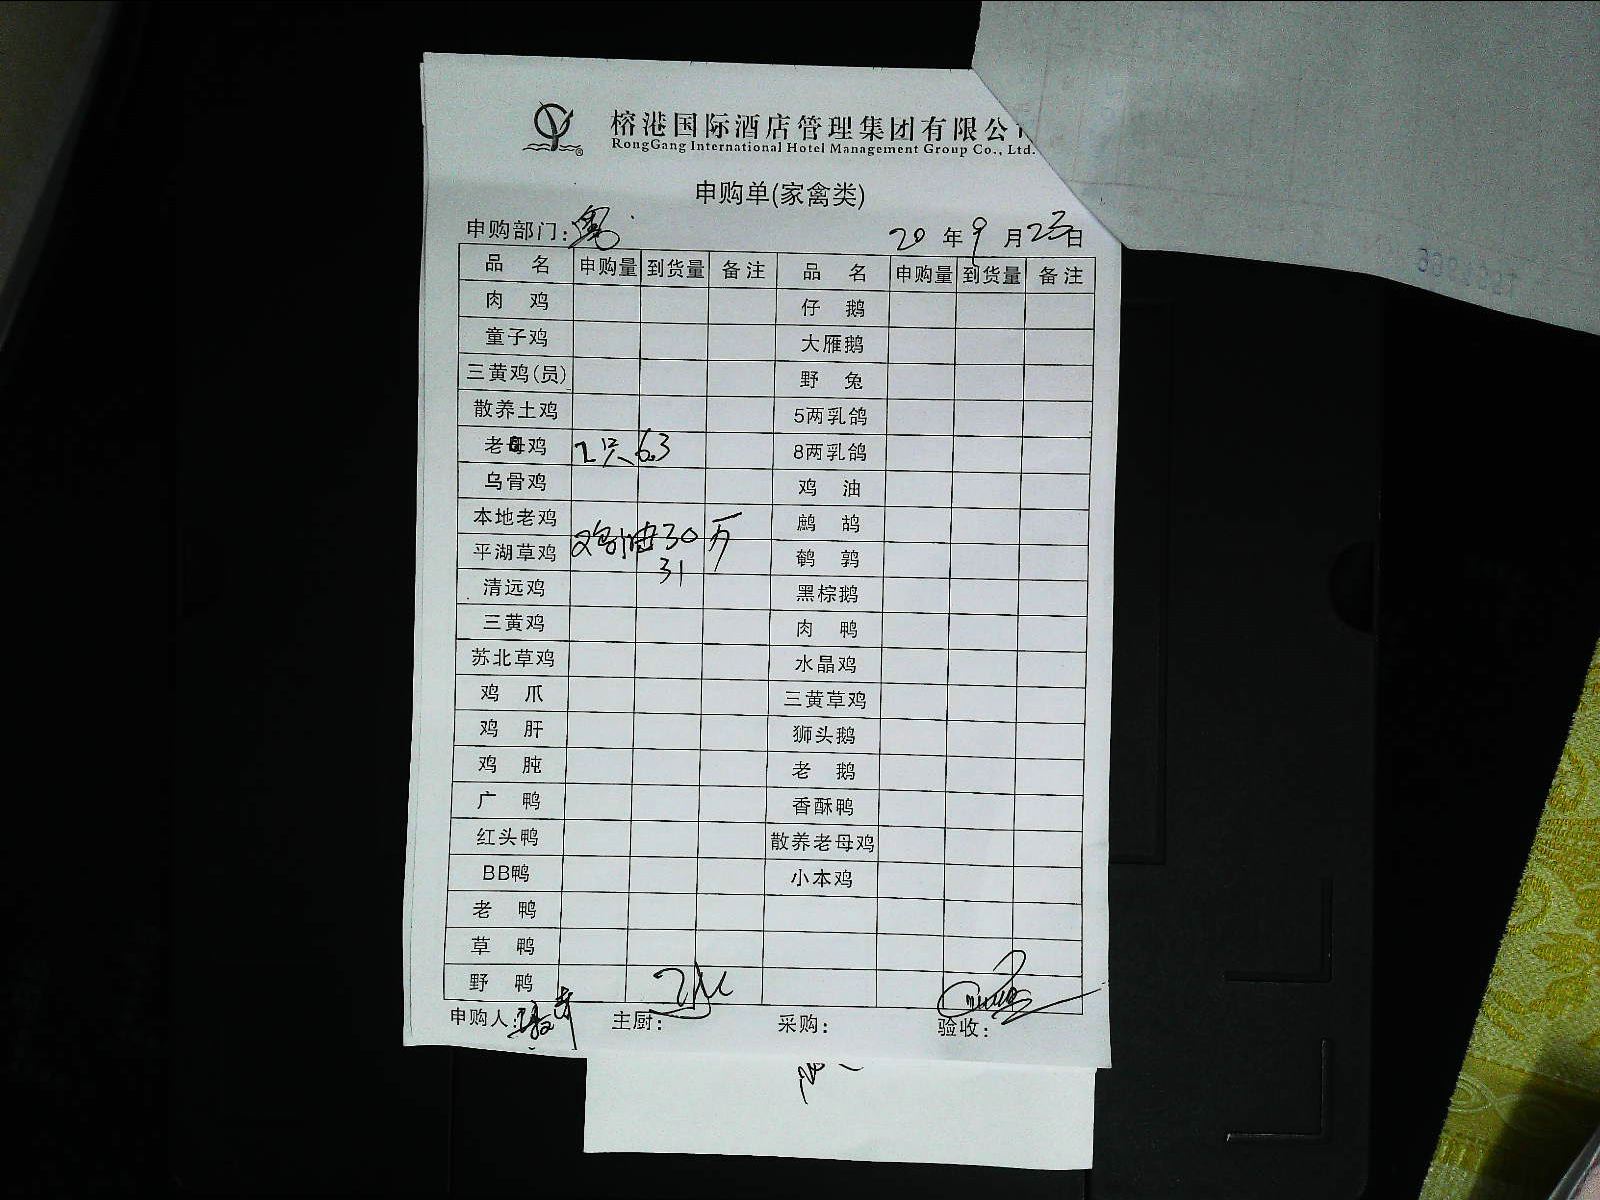 榕港国际酒店管理集团有限公
RongGang International Hotel Management Group Co., Ltd.
申购单(家禽类)
申购部门: 粤
20 年 9 月 23 日
品 名 申购量 到货量 备注 品 名 申购量 到货量 备注
肉 鸡 仔 鹅
童子鸡 大雁鹅
三黄鸡(员) 野 兔
散养土鸡 5两乳鸽
老母鸡 2只 6.3 8两乳鸽
乌骨鸡 鸡 油
本地老鸡 鹧 鸪
鸡油30斤
平湖草鸡 鹌 鹑
31
清远鸡 黑棕鹅
三黄鸡 肉 鸭
苏北草鸡 水晶鸡
鸡 爪 三黄草鸡
鸡 肝 狮头鹅
鸡 肫 老 鹅
广 鸭 香酥鸭
红头鸭 散养老母鸡
BB鸭 小本鸡
老 鸭
草 鸭
野 鸭
申购人: 主厨: 采购: 验收: